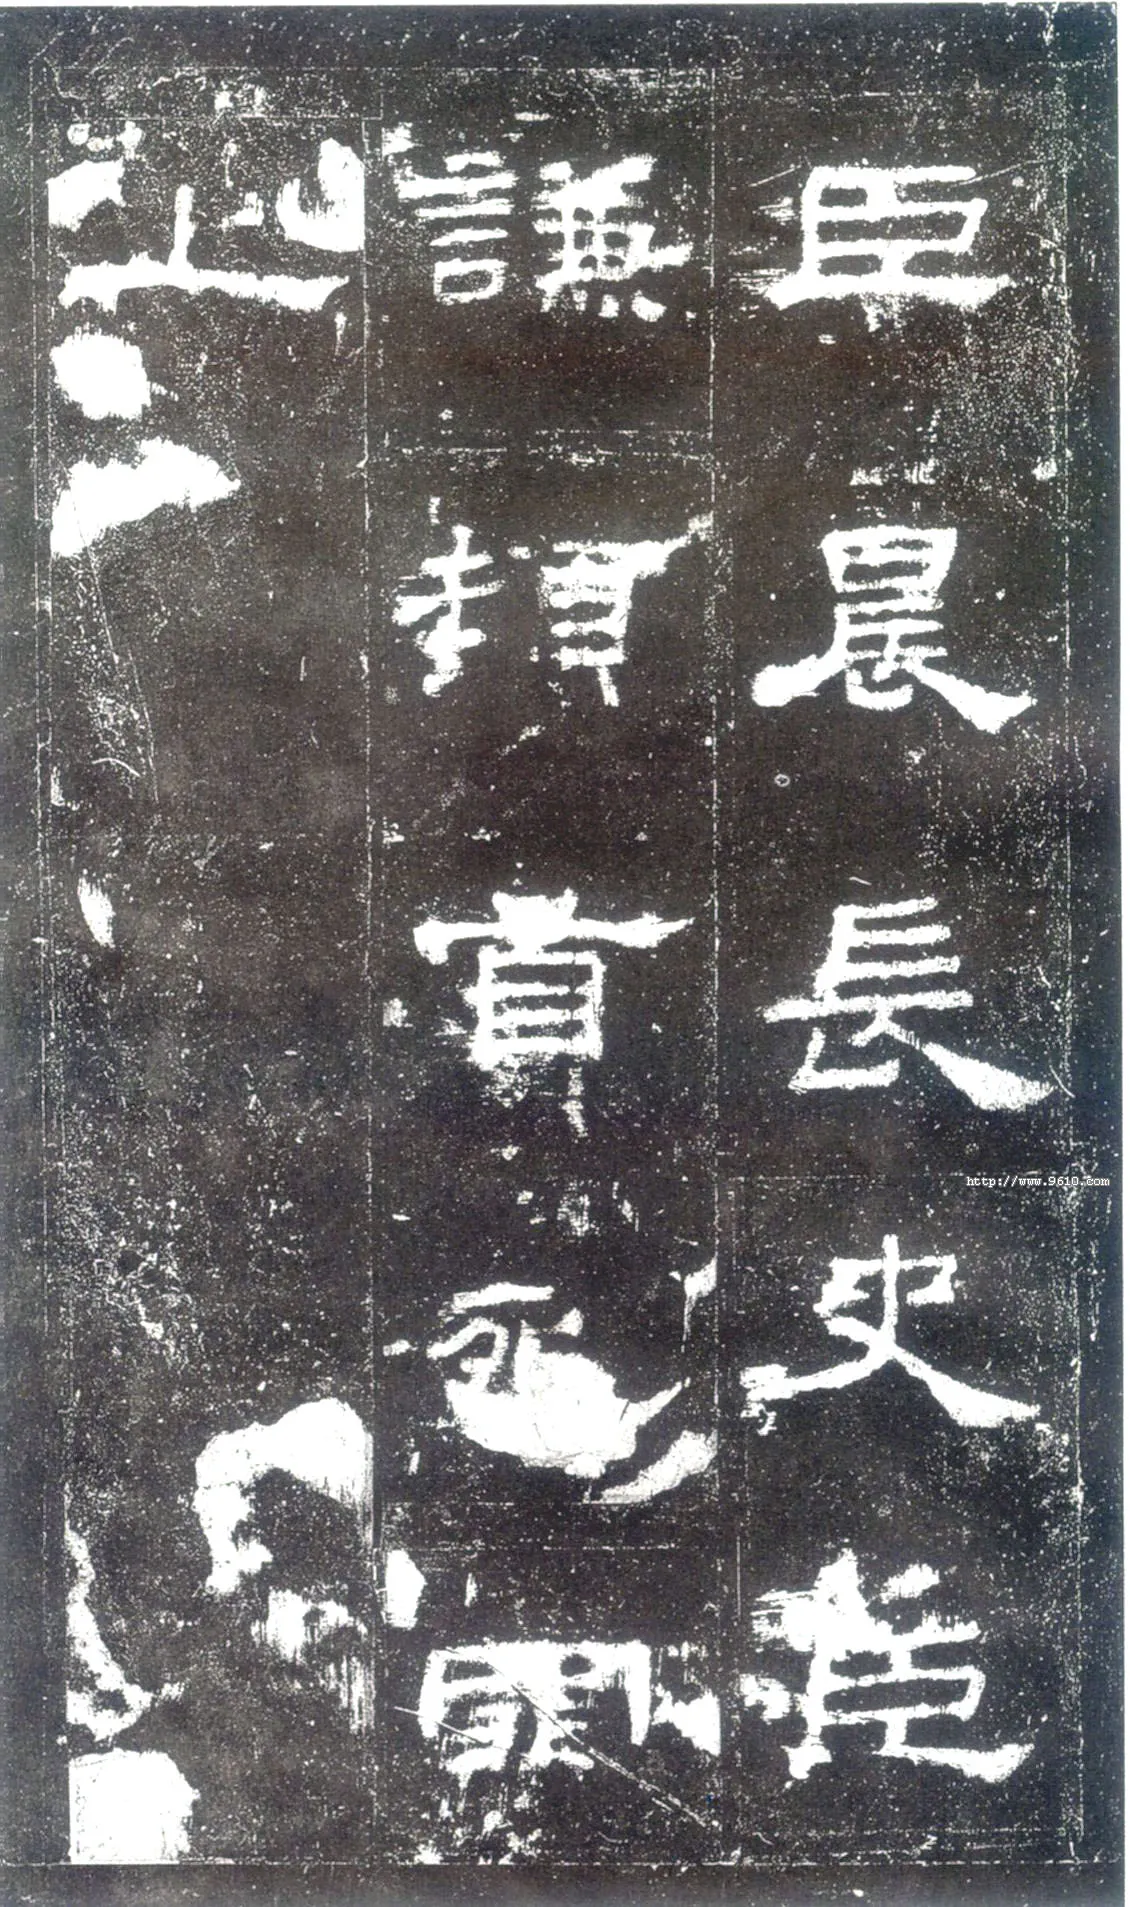 臣晨長史臣
謙頓首死罪
上
http://www.9610.com